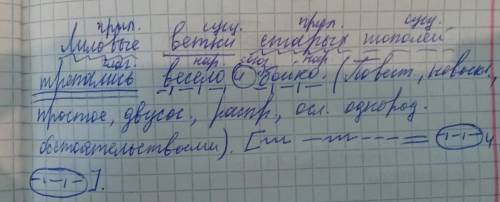 прил. сущ. прил. сущ.
Лиловые ветки старых тополей
глаг. нар. союз нар.
трепались весело и бойко. (Повест, невоскл,
простое, двусос, распр, осл. однород.
обстоятельствами). [
и
].